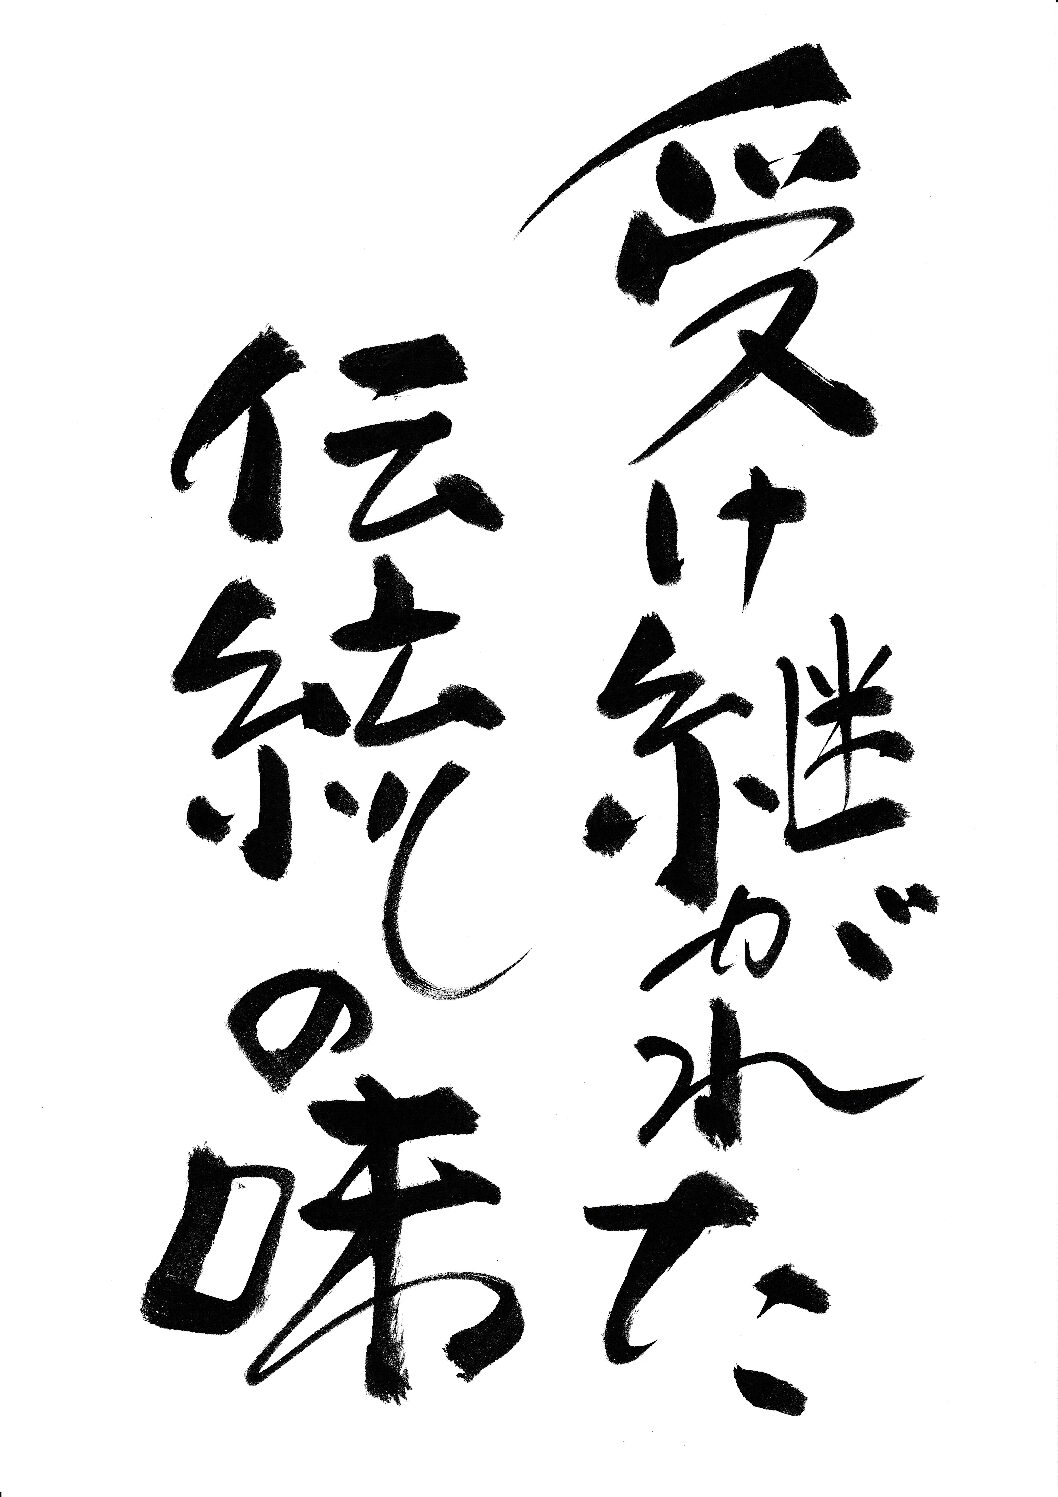 受け継がれた
伝統の味